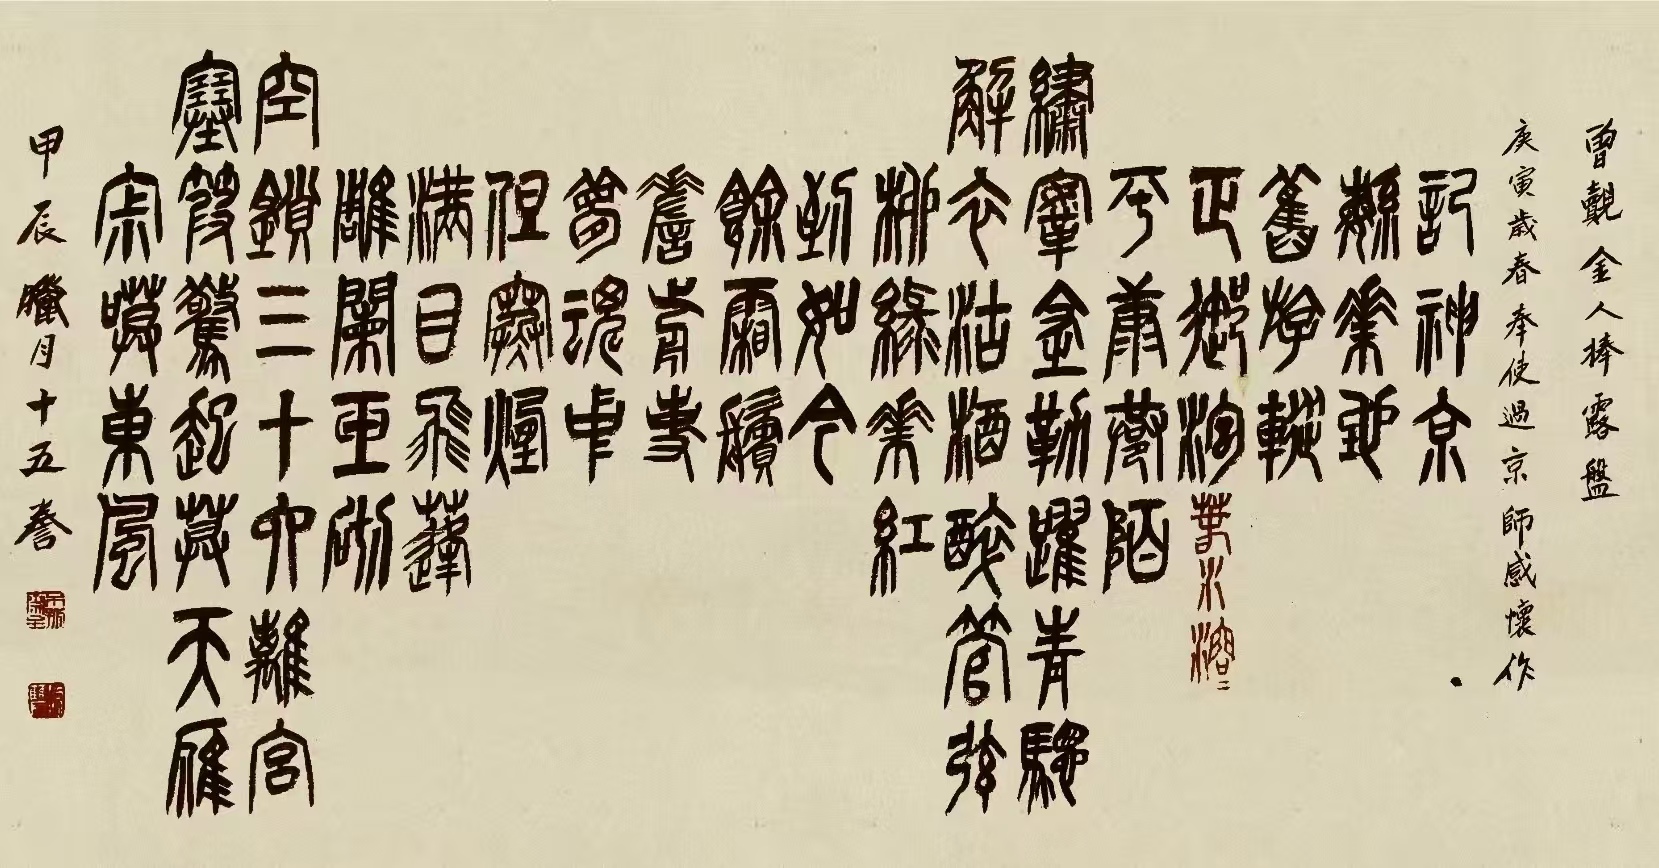 曾覿金人捧露盤
庚寅歲春奉使過京師感懷作
記神京
繁華地
舊游蹤
正御溝春水溶〻
平康巷陌
繡鞍金勒躍青驄
解衣沽酒醉管弦
柳綠華紅
到如今
餘霜鬢
嗟前事
夢魂中
但寒煙
滿目飛蓬
雕闌玉砌
空鎖三十六離宮
塞笳驚起莫天雁
寂寞東風
甲辰臘月十五